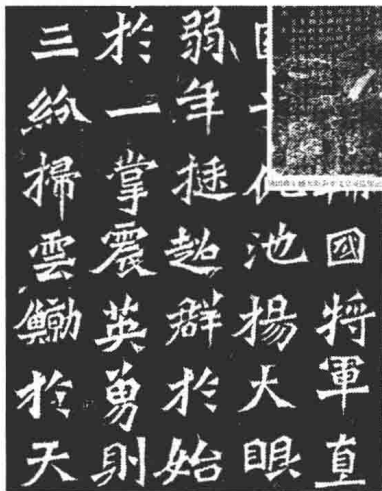 國將軍直
池揚大眼
弱年挺超群於始
於一掌震英勇則
三紛掃雲鯨於天